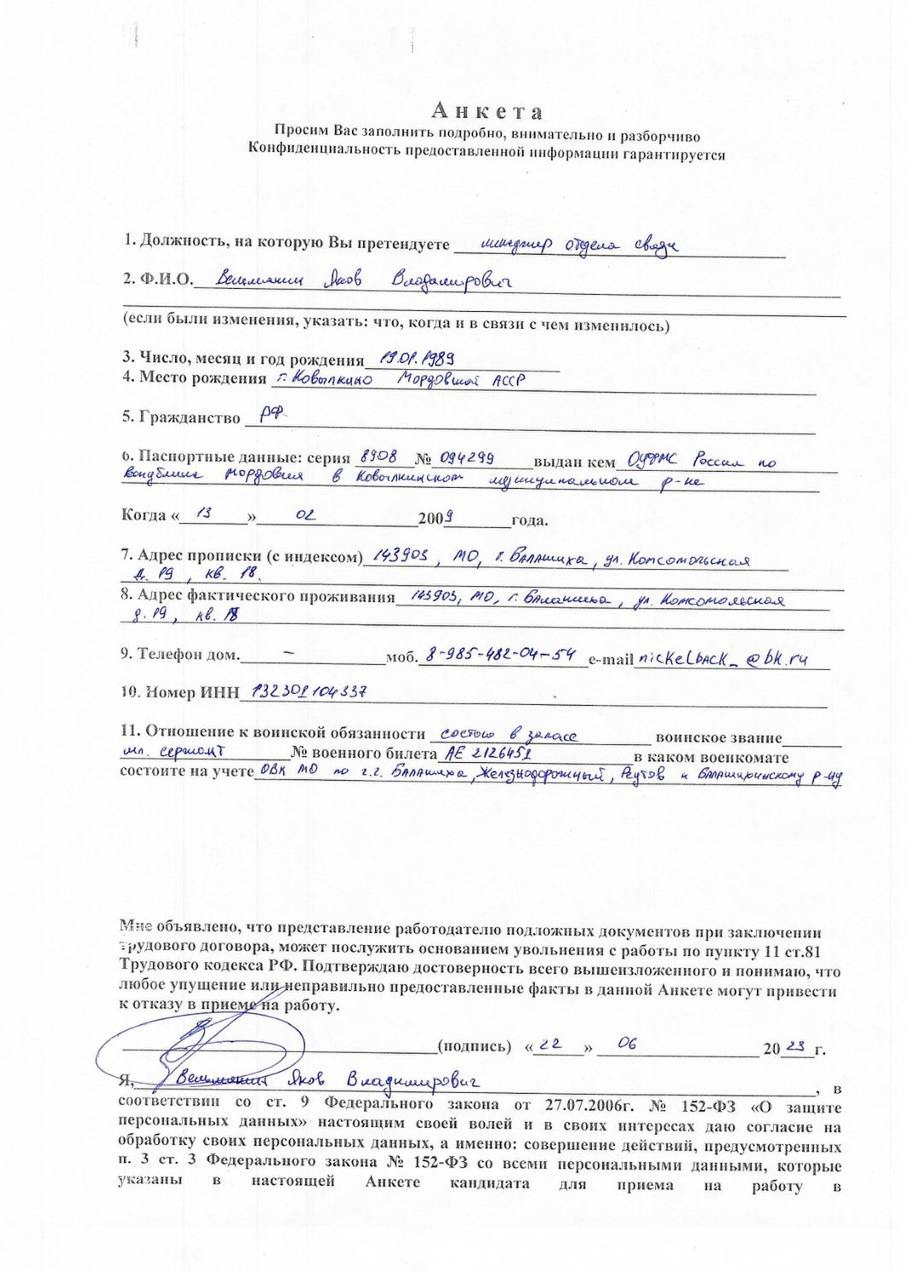 Анкета
Просим Вас заполнить подробно, внимательно и разборчиво
Конфиденциальность предоставленной информации гарантируется
1. Должность, на которую Вы претендуете менеджер отдела связи
2. Ф.И.О. Яков Владимирович
(если были изменения, указать: что, когда и в связи с чем изменилось)
3. Число, месяц и год рождения 19.01.1989
4. Место рождения г. Ковылкино Мордовской АССР
5. Гражданство РФ
6. Паспортные данные: серия 8908 № 094299 выдан кем ОУФМС России по
республике Мордовия в Ковылкинском муниципальном р-не
Когда «13» 02 2009 года.
7. Адрес прописки (с индексом) 143903, МО, г. Балашиха, ул. Комсомольская
д. 19, кв. 18.
8. Адрес фактического проживания 143903, МО, г. Балашиха, ул. Комсомольская
д. 19, кв. 18
9. Телефон дом. – моб. 8-985-482-04-54 e-mail nickelback_@bk.ru
10. Номер ИНН 132301104337
11. Отношение к воинской обязанности состою в запасе воинское звание
мл. сержант № военного билета АЕ 2126451 в каком военкомате
состоите на учете ОВК МО по г.г. Балашиха, Железнодорожный, Реутов и Балашихинскому р-ну
Мне объявлено, что представление работодателю подложных документов при заключении
трудового договора, может послужить основанием увольнения с работы по пункту 11 ст.81
Трудового кодекса РФ. Подтверждаю достоверность всего вышеизложенного и понимаю, что
любое упущение или неправильно предоставленные факты в данной Анкете могут привести
к отказу в приеме на работу.
(подпись) «22» 06 2023 г.
Я, Яков Владимирович, в
соответствии со ст. 9 Федерального закона от 27.07.2006г. № 152-ФЗ «О защите
персональных данных» настоящим своей волей и в своих интересах даю согласие на
обработку своих персональных данных, а именно: совершение действий, предусмотренных
п. 3 ст. 3 Федерального закона № 152-ФЗ со всеми персональными данными, которые
указаны в настоящей Анкете кандидата для приема на работу в